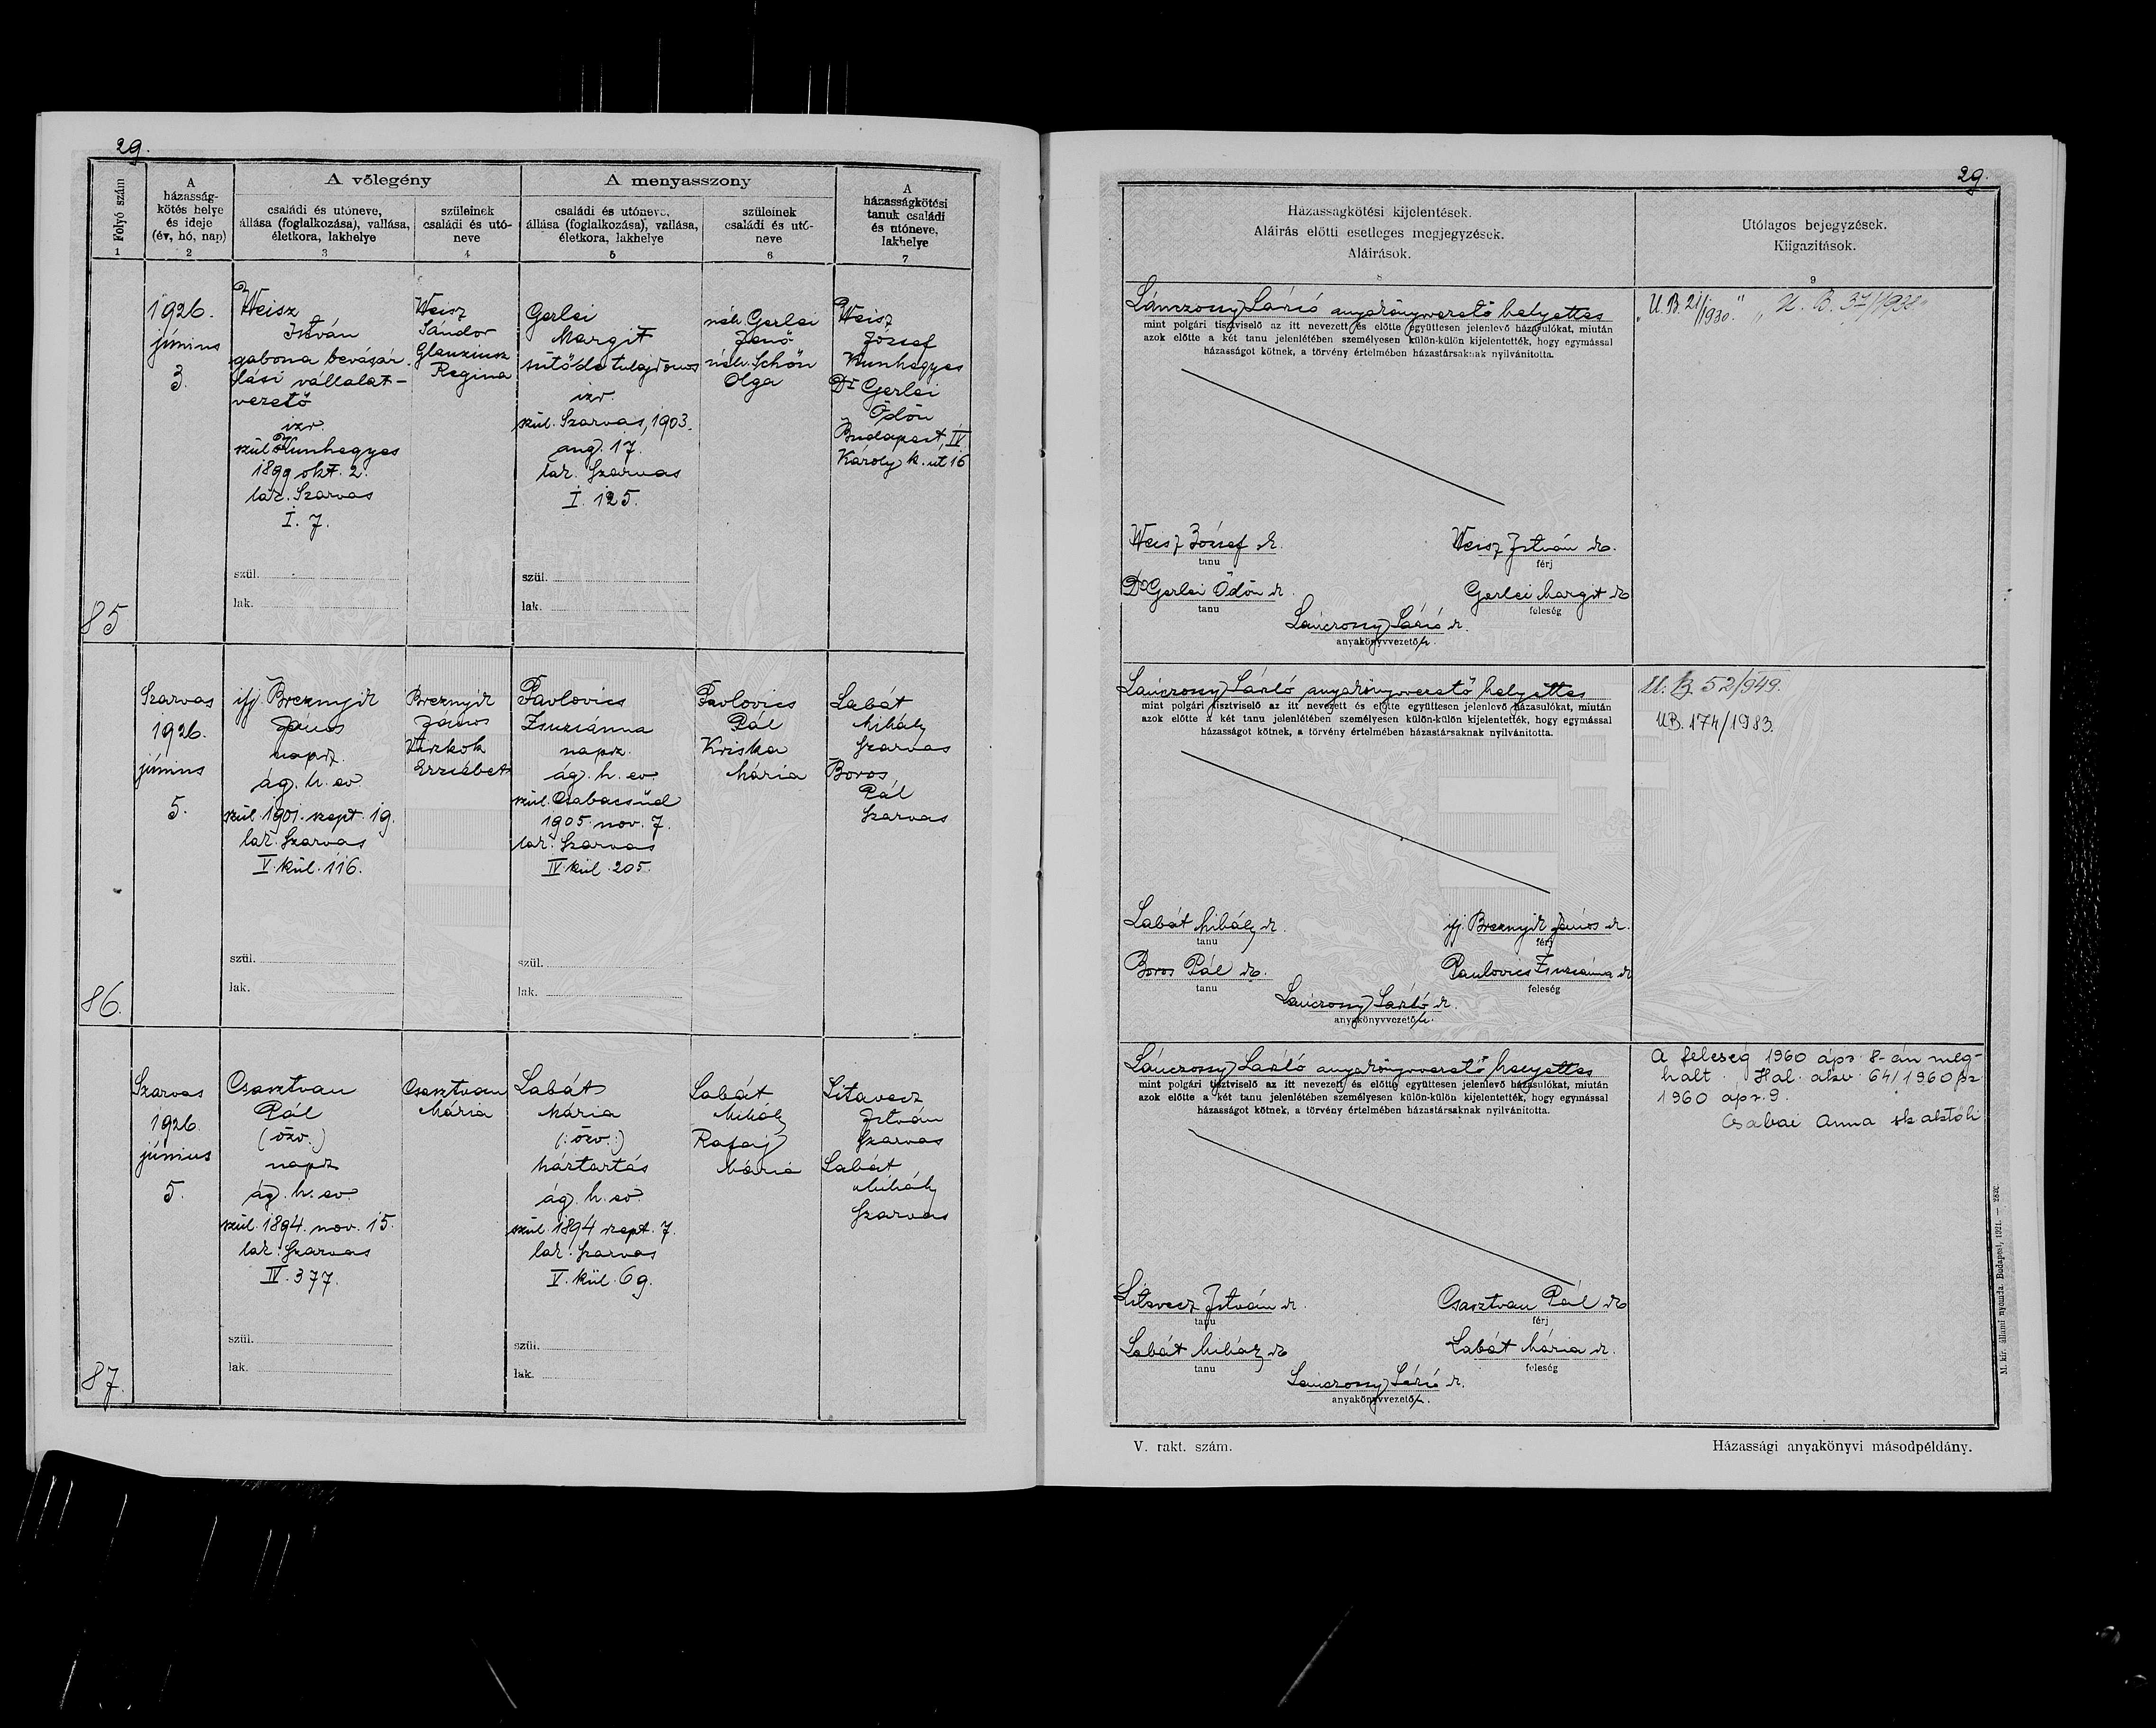 29.
Folyó szám
1
A házasság-
kötés helye
és ideje
(év, hó, nap)
2
A vőlegény
családi és utóneve,
állása (foglalkozása), vallása,
életkora, lakhelye
3
szüleinek
családi és utó-
neve
4
A menyasszony
családi és utóneve,
állása (foglalkozása), vallása,
életkora, lakhelye
5
szüleinek
családi és utó-
neve
6
A
házasságkötési
tanuk családi
és utóneve,
lakhelye
7
85
1926.
június
3.
Weisz
István
gabona bevásár-
lási vállalat-
vezető
izr.
szül. Kunhegyes
1899 okt. 2.
lak. Szarvas
I. 7.
szül.
lak.
Weisz
Sándor
Regina
Gerlei
Margit
sütőde tulajdonos
izr.
szül. Szarvas, 1903.
aug. 17.
lak. Szarvas
I. 125.
szül.
lak.
néh. Gerlei
Jenő
néh. Schön
Olga
Weisz
József
Kunhegyes
Dr Gerlei
Ödön
Budapest, IV
Károly k. út 16
86.
Szarvas
1926.
június
5.
ifj. Breznyik
János
napsz.
ág. h. ev.
szül. 1901. szept. 19.
lak. Szarvas
V. kül. 116.
szül.
lak.
Breznyik
János
Erzsébet
Pavlovics
Zsuzsánna
napsz.
ág. h. ev.
szül. Csabacsűd
1905. nov. 7.
lak. Szarvas
IV. kül. 205.
szül.
lak.
Pavlovics
Pál
Kriska
Mária
Labát
Mihály
Szarvas
Boros
Pál
Szarvas
87.
Szarvas
1926.
június
5.
Csasztvan
Pál
(özv.)
napsz
ág. h. ev.
szül. 1894. nov. 15.
lak. Szarvas
IV. 377.
szül.
lak.
Csasztvan
Mária
Labát
Mária
(: özv. :)
háztartás
ág. h. ev.
szül. 1894 szept. 7.
lak. Szarvas
V. kül. 69.
szül.
lak.
Labát
Mihály
Rafaj
Mária
Litavecz
István
Szarvas
Labát
Mihály
Szarvas
29.
Házasságkötési kijelentések.
Aláírás előtti esetleges megjegyzések.
Aláírások.
8
Utólagos bejegyzések.
Kiigazítások.
9
Lánczony László anyakönyvvezető helyettes
mint polgári tisztviselő az itt nevezett és előtte együttesen jelenlevő házasulókat, miután
azok előtte a két tanu jelenlétében személyesen külön-külön kijelentették, hogy egymással
házasságot kötnek, a törvény értelmében házastársaknak nyilvánította.
"U. B. 21/1930." "U. B. 37/1928"
Weisz József sk.
tanu
Weisz István sk.
férj
Dr Gerlei Ödön sk.
tanu
Gerlei Margit sk
feleség
Lánczony László sk.
anyakönyvvezető h.
Lánczony László anyakönyvvezető helyettes
mint polgári tisztviselő az itt nevezett és előtte együttesen jelenlevő házasulókat, miután
azok előtte a két tanu jelenlétében személyesen külön-külön kijelentették, hogy egymással
házasságot kötnek, a törvény értelmében házastársaknak nyilvánította.
U. B. 52/949.
UB. 174/1983.
Labát Mihály sk.
tanu
ifj. Breznyik János sk.
férj
Boros Pál sk.
tanu
Pavlovics Zsuzsánna sk
feleség
Lánczony László sk.
anyakönyvvezető h.
Lánczony László anyakönyvvezető helyettes
mint polgári tisztviselő az itt nevezett és előtte együttesen jelenlevő házasulókat, miután
azok előtte a két tanu jelenlétében személyesen külön-külön kijelentették, hogy egymással
házasságot kötnek, a törvény értelmében házastársaknak nyilvánította.
A feleség 1960 ápr. 8-án meg-
halt. Hal. akv. 64/1960
1960 ápr. 9.
Csabai Anna
Litavecz István sk.
tanu
Csasztvan Pál sk
férj
Labát Mihály sk
tanu
Labát Mária sk.
feleség
Lánczony László sk.
anyakönyvvezető h.
M. kir. állami nyomda. Budapest, 1921.
V. rakt. szám.
Házassági anyakönyvi másodpéldány.